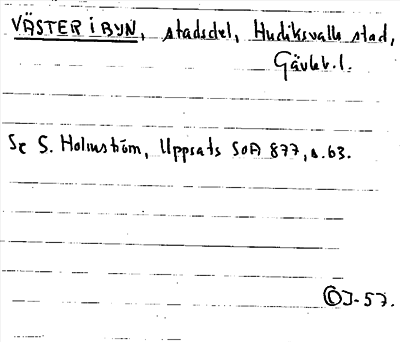 VÄSTER I BYN, stadsdel, Hudiksvalls stad,
Gävleb. l.
Se S. Holmström, Uppsats SOA 877, s. 63.
OJ-57.